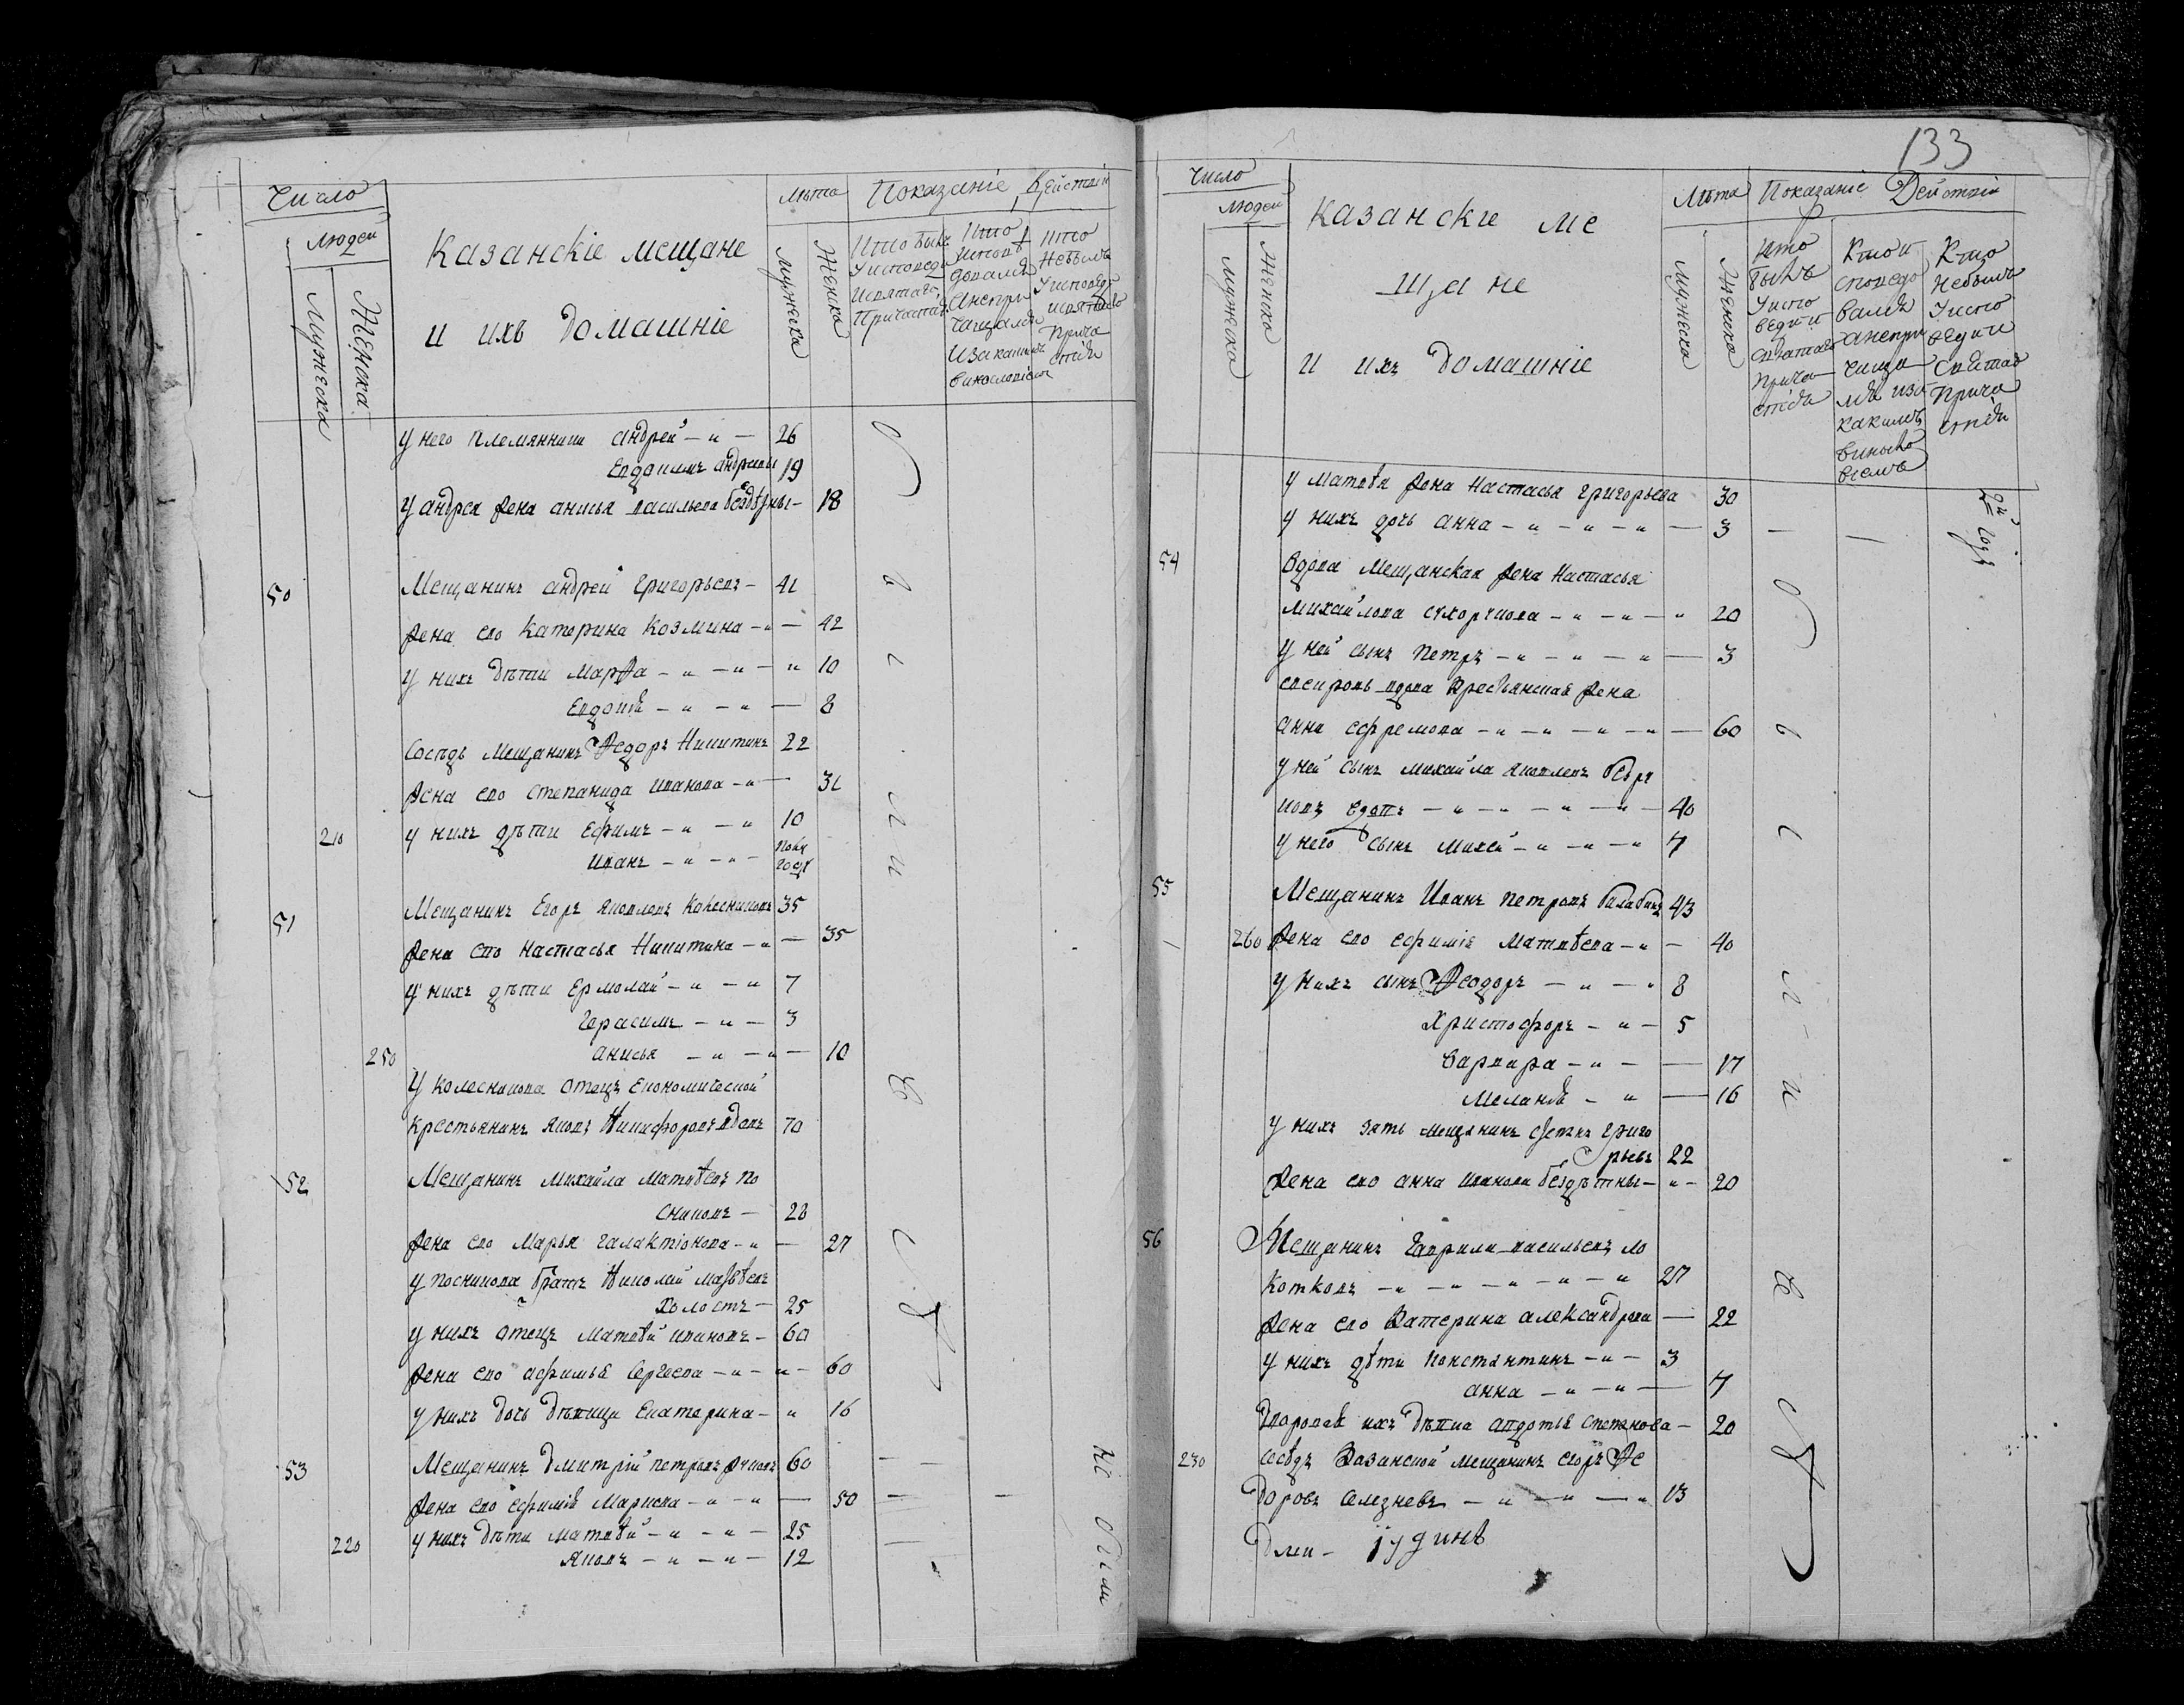 Число
Людей
Мужеска
Женска
Казанскіе мещане
и ихъ домашніе
Лѣта
Мужеска
Женска
Показаніе Действій
Кто былъ
У исповеди
И святаго
Причастія
Кто
Испов
довался
А непри
чащался
И за какимъ
Винословіемъ
Кто
Не былъ
У исповеди
и святаго
Прича
стія
У него племянники Андрей 26
Евдокимъ Андреевы 19
У Андрея жена Анисья Васильева бездѣтны 18
50 Мещанинъ Андрей Григорьевъ 41
Жена его Катерина Козмина 42
У нихъ дѣти Марѳа 10
Евдокія 8
Соседъ Мещанинъ Ѳедоръ Никитинъ 22
Жена его Степанида Иванова 31
210 У нихъ дѣти Ефимъ 10
Иванъ полу
году
51 Мещанинъ Егоръ Яковлевъ Колесниковъ 35
Жена его Настасья Никитина 35
У нихъ дѣти Ермолай 7
Герасимъ 3
250 Анисья 10
У Колесникова отецъ Економической
Крестьянинъ Яковъ Никифоровъ вдовъ 70
52 Мещанинъ Михайла Матвѣевъ По
сниковъ 28
Жена его Марья Галактіонова 27
У Посникова братъ Николай Матвѣевъ
Холостъ 25
У нихъ отецъ Матвѣй Ивановъ 60
Жена его Афимья Сергеева 60
У нихъ дочь дѣвица Екатерина 16
53 Мещанинъ Дмитрій Петровъ 60
Жена его Ефимія Маркова 50
У нихъ дѣти Матвѣй 25
220 Яковъ 12
Не были
133
Число
Людей
Мужеска
Женска
Казанскіе ме
щане
и ихъ домашніе
Лѣта
Мужеска
Женска
Показаніе Действій
Кто
былъ
У испо
веди и
Святаго
Прича
стія
Кто и
споведо
вался
А непри
чаща
лся и за
какимъ
Винosло
віемъ
Кто
Небылъ
У испо
веди и
Святаго
Прича
стія
У Матвѣя жена Настасья Григорьева 30
У нихъ дочь Анна 3
54 Вдова Мещанская жена Настасья
Михайлова 20
У ней сынъ Петръ 3
Свекровь вдова Крестьянская жена
Анна Ефремова 60
У ней сынъ Михайла Яковлевъ
вдовъ 40
У него сынъ Михей 7
55 Мещанинъ Иванъ Петровъ Балабинъ 43
260 Жена его Ефимія Матвѣева 40
У нихъ сынъ Ѳеодоръ 8
Христофоръ 5
Варвара 17
Меланія 16
У нихъ зять мещанинъ Григо
рьевъ 22
Жена его Анна Иванова бездѣтны 20
56 Мещанинъ Гаврила Васильевъ Ло
котковъ 27
Жена его Катерина Александрова 22
У нихъ дѣти Константинъ 3
Анна 7
Дворовая ихъ дѣвка Авдотья Степанова 20
230 Соседъ Казанской мещанинъ Егоръ Ѳе
доровъ Селезневъ 13